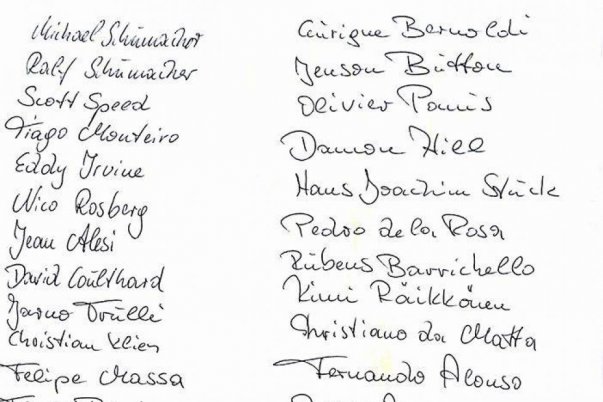 Michael Schumacher
Ralf Schumacher
Scott Speed
Tiago Monteiro
Eddy Irvine
Nico Rosberg
Jean Alesi
David Coulthard
Jarno Trulli
Christian Klien
Felipe Massa
Enrique Bernoldi
Jenson Button
Olivier Panis
Damon Hill
Hans Joachim Stuck
Pedro de la Rosa
Rubens Barrichello
Kimi Räikkönen
Christiano da Matta
Fernando Alonso